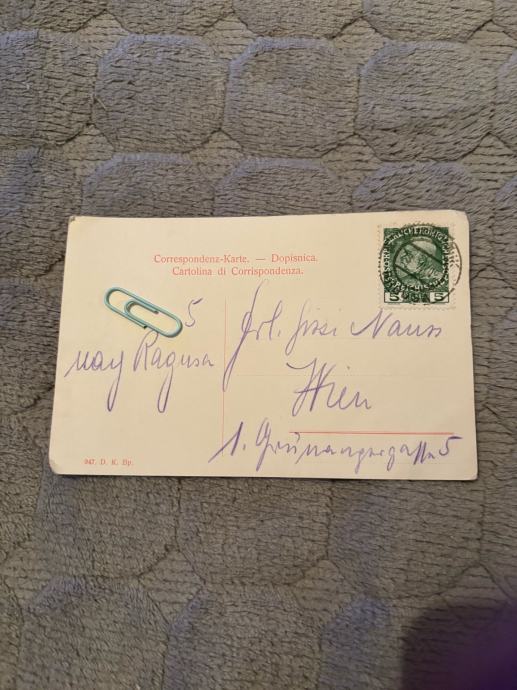 Correspondenz-Karte. — Dopisnica.
Cartolina di Corrispondenza.
5
nach Ragusa
Frl. Gissi
Wien
1. Grünangergasse 5
947. D. K. Bp.
5 5